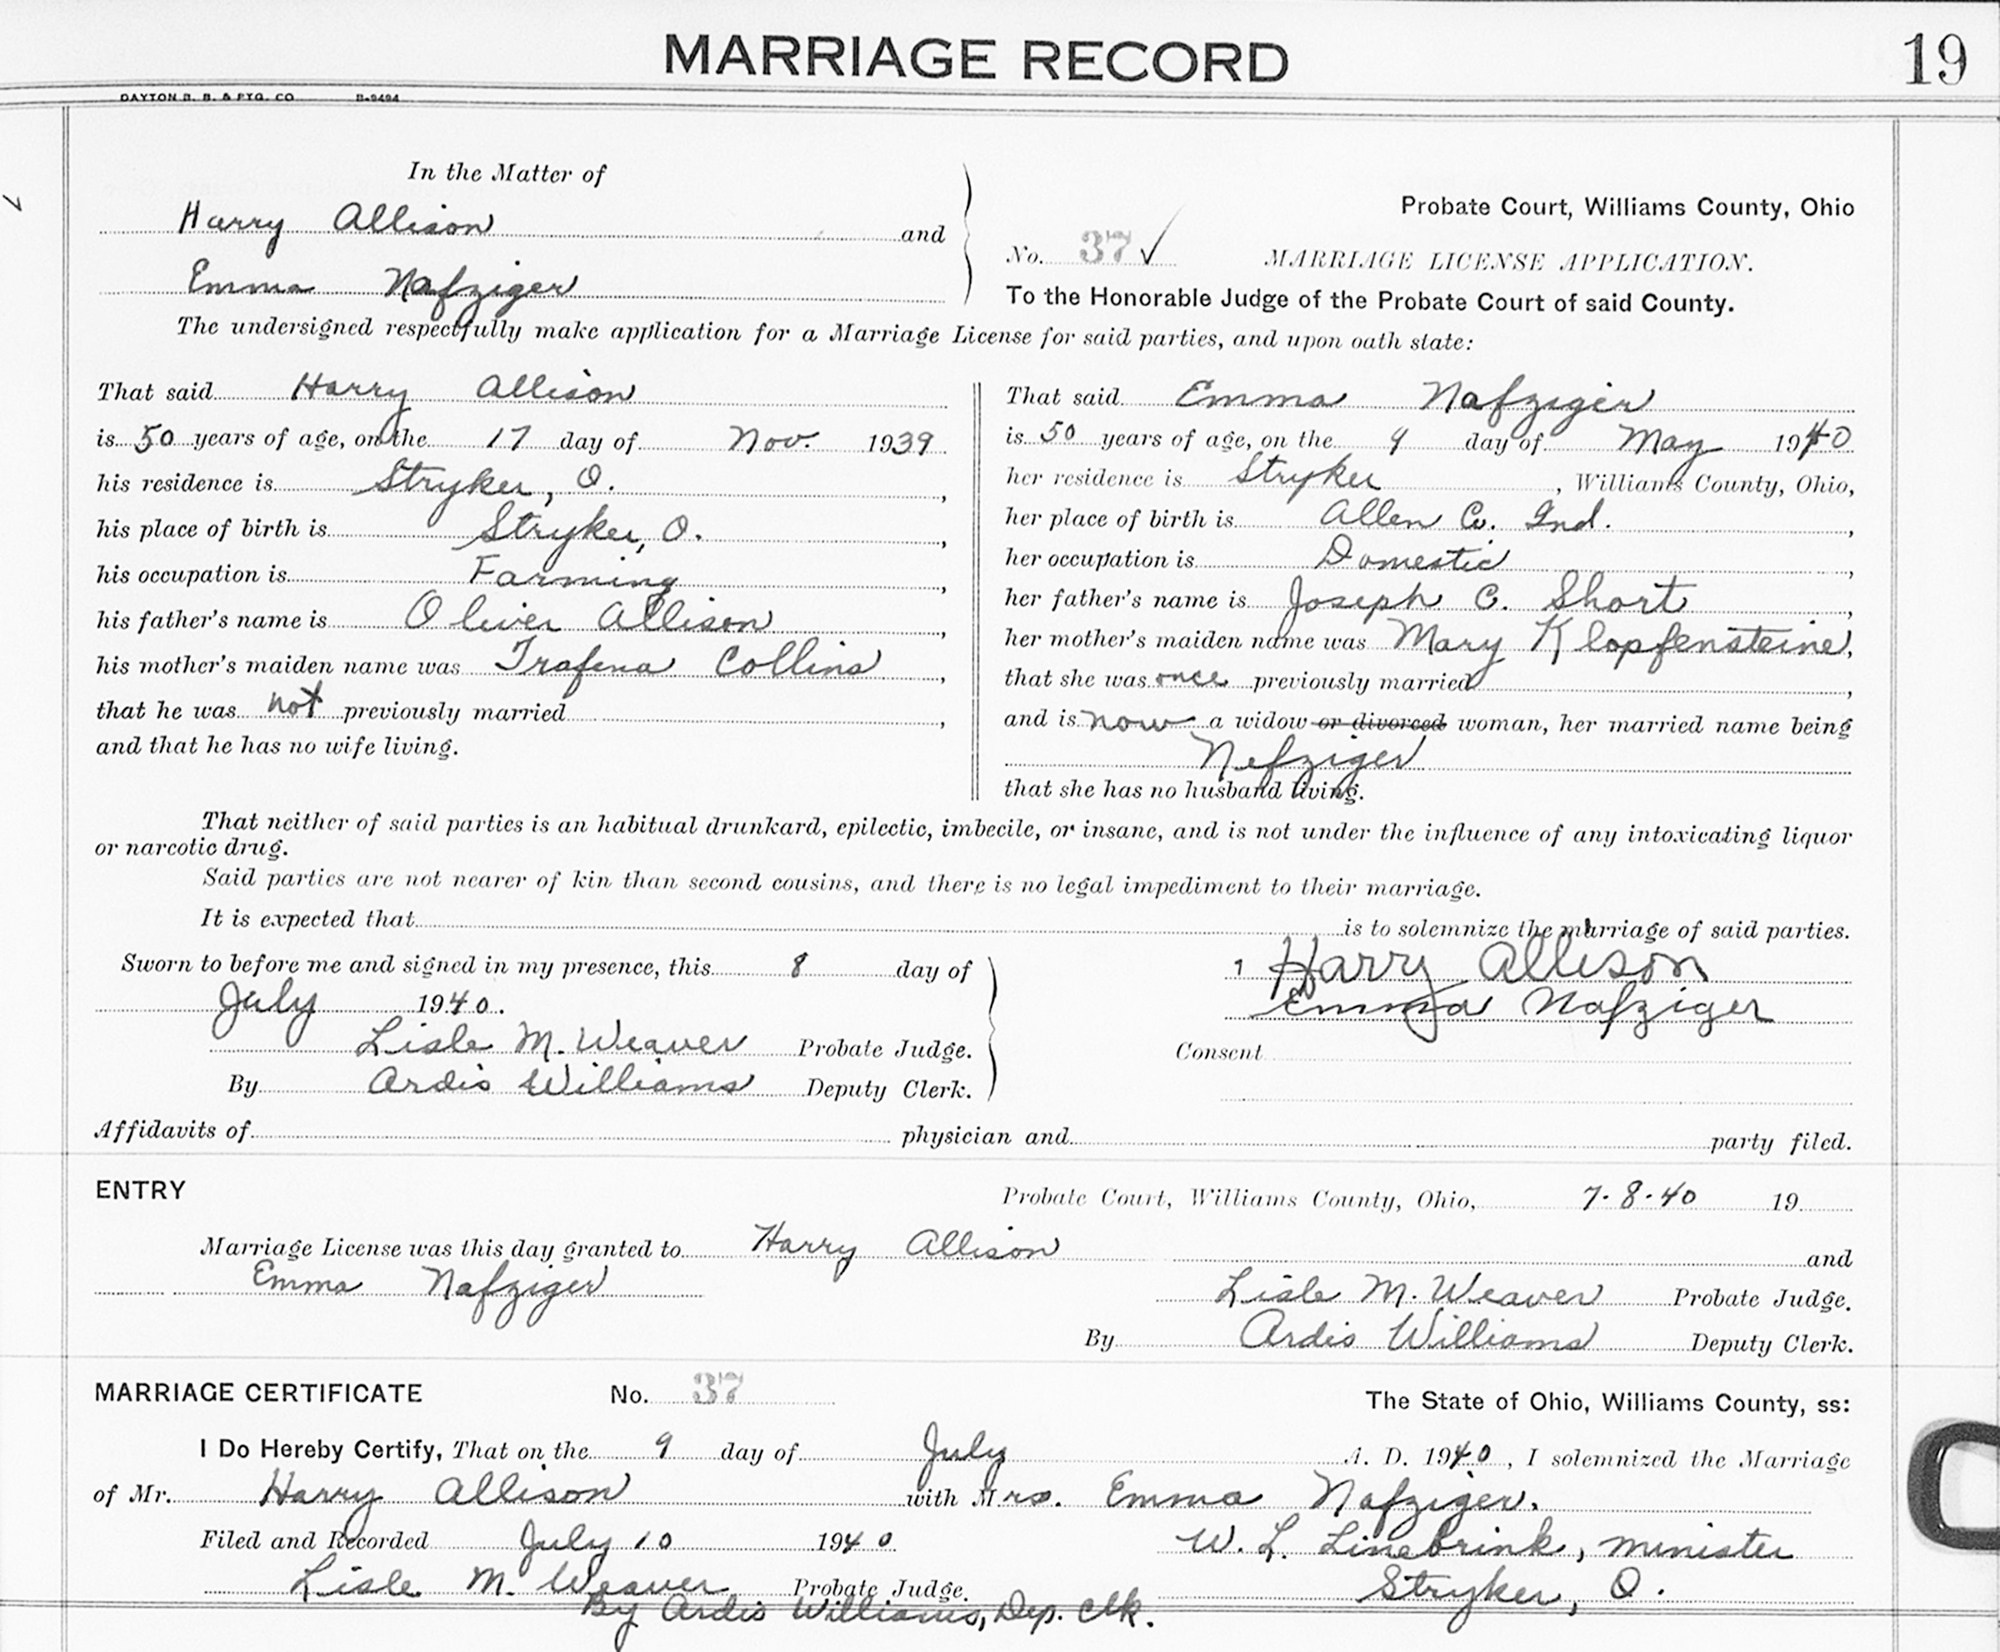 MARRIAGE RECORD
19
DAYTON B. B. & PTG. CO. B-9494
In the Matter of
Harry Allison and
Emma Nafziger
Probate Court, Williams County, Ohio
No. 37 ✓ MARRIAGE LICENSE APPLICATION.
To the Honorable Judge of the Probate Court of said County.
The undersigned respectfully make application for a Marriage License for said parties, and upon oath state:
That said Harry Allison
is 50 years of age, on the 17 day of Nov. 1939
his residence is Stryker, O. ,
his place of birth is Stryker, O. ,
his occupation is Farming ,
his father's name is Oliver Allison ,
his mother's maiden name was Trafena Collins ,
that he was not previously married ,
and that he has no wife living.
That said Emma Nafziger
is 50 years of age, on the 9 day of May 1940
her residence is Stryker , Williams County, Ohio,
her place of birth is Allen Co. Ind. ,
her occupation is Domestic ,
her father's name is Joseph C. Short ,
her mother's maiden name was Mary Klopfensteine,
that she was once previously married ,
and is now a widow or divorced woman, her married name being
Nefziger
that she has no husband living.
That neither of said parties is an habitual drunkard, epilectic, imbecile, or insane, and is not under the influence of any intoxicating liquor
or narcotic drug.
Said parties are not nearer of kin than second cousins, and there is no legal impediment to their marriage.
It is expected that is to solemnize the marriage of said parties.
Sworn to before me and signed in my presence, this 8 day of
July 1940.
Lisle M. Weaver Probate Judge.
By Ardis Williams Deputy Clerk.
1 Harry Allison
Emma Nafziger
Consent
Affidavits of physician and party filed.
ENTRY Probate Court, Williams County, Ohio, 7-8-40 19
Marriage License was this day granted to Harry Allison and
Emma Nafziger
Lisle M. Weaver Probate Judge.
By Ardis Williams Deputy Clerk.
MARRIAGE CERTIFICATE No. 37 The State of Ohio, Williams County, ss:
I Do Hereby Certify, That on the 9 day of July A. D. 1940, I solemnized the Marriage
of Mr. Harry Allison with Mrs. Emma Nafziger.
Filed and Recorded July 10 1940
W. L. Linebrink, minister
Lisle M. Weaver Probate Judge.
Stryker, O.
By Ardis Williams, Dep. Clk.